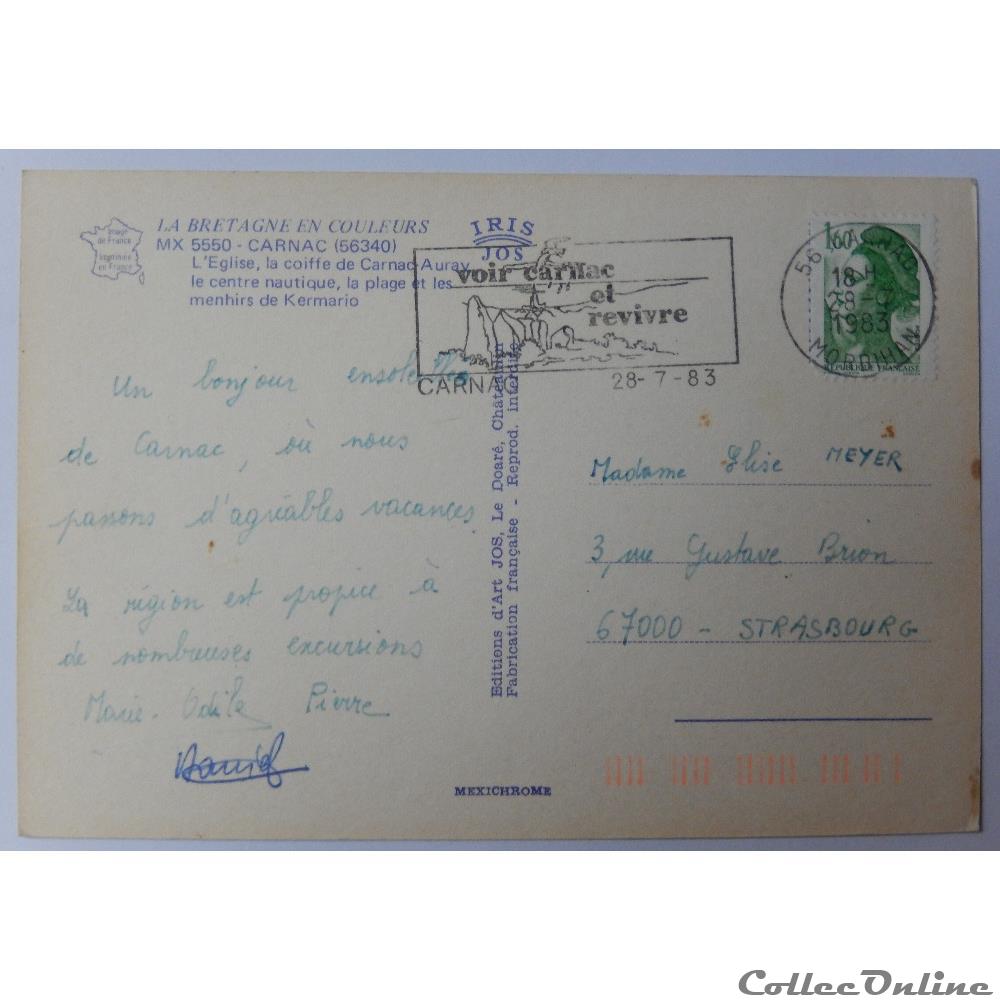 Image
de France
Imprimée
en France
LA BRETAGNE EN COULEURS
MX 5550 - CARNAC (56340)
L'Eglise, la coiffe de Carnac-Auray,
le centre nautique, la plage et les
menhirs de Kermario
IRIS
JOS
voir carnac
et
revivre
CARNAC 28-7-83
1,60
56 CARNAC
18 H
28 -7
1983
MORBIHAN
REPUBLIQUE FRANÇAISE
Un bonjour ensoleillé
de Carnac, où nous
passons d'agréables vacances.
La région est propice à
de nombreuses excursions
Marie-Odile Pierre
Daniel
Editions d'Art JOS, Le Doaré, Châteaulin
Fabrication française - Reprod. interdite
Madame Elise MEYER
3, rue Gustave Brion
67000 - STRASBOURG
MEXICHROME
CollecOnline